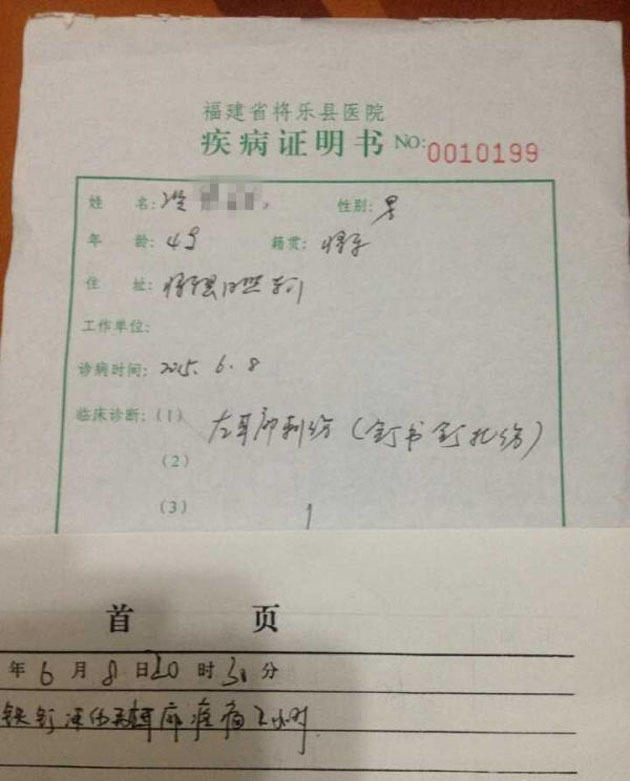 福建省将乐县医院
疾病证明书 NO:0010199
姓 名: 性别: 男
年 龄: 4岁 籍贯: 将乐
住 址: 将乐县日照东门
工作单位:
诊病时间: 2015. 6. 8
临床诊断:(1) 左耳廓刺伤(钉书钉扎伤)
(2)
(3)
首 页
年 6 月 8 日 20 时 30 分
铁钉 伤 耳廓疼痛 2小时